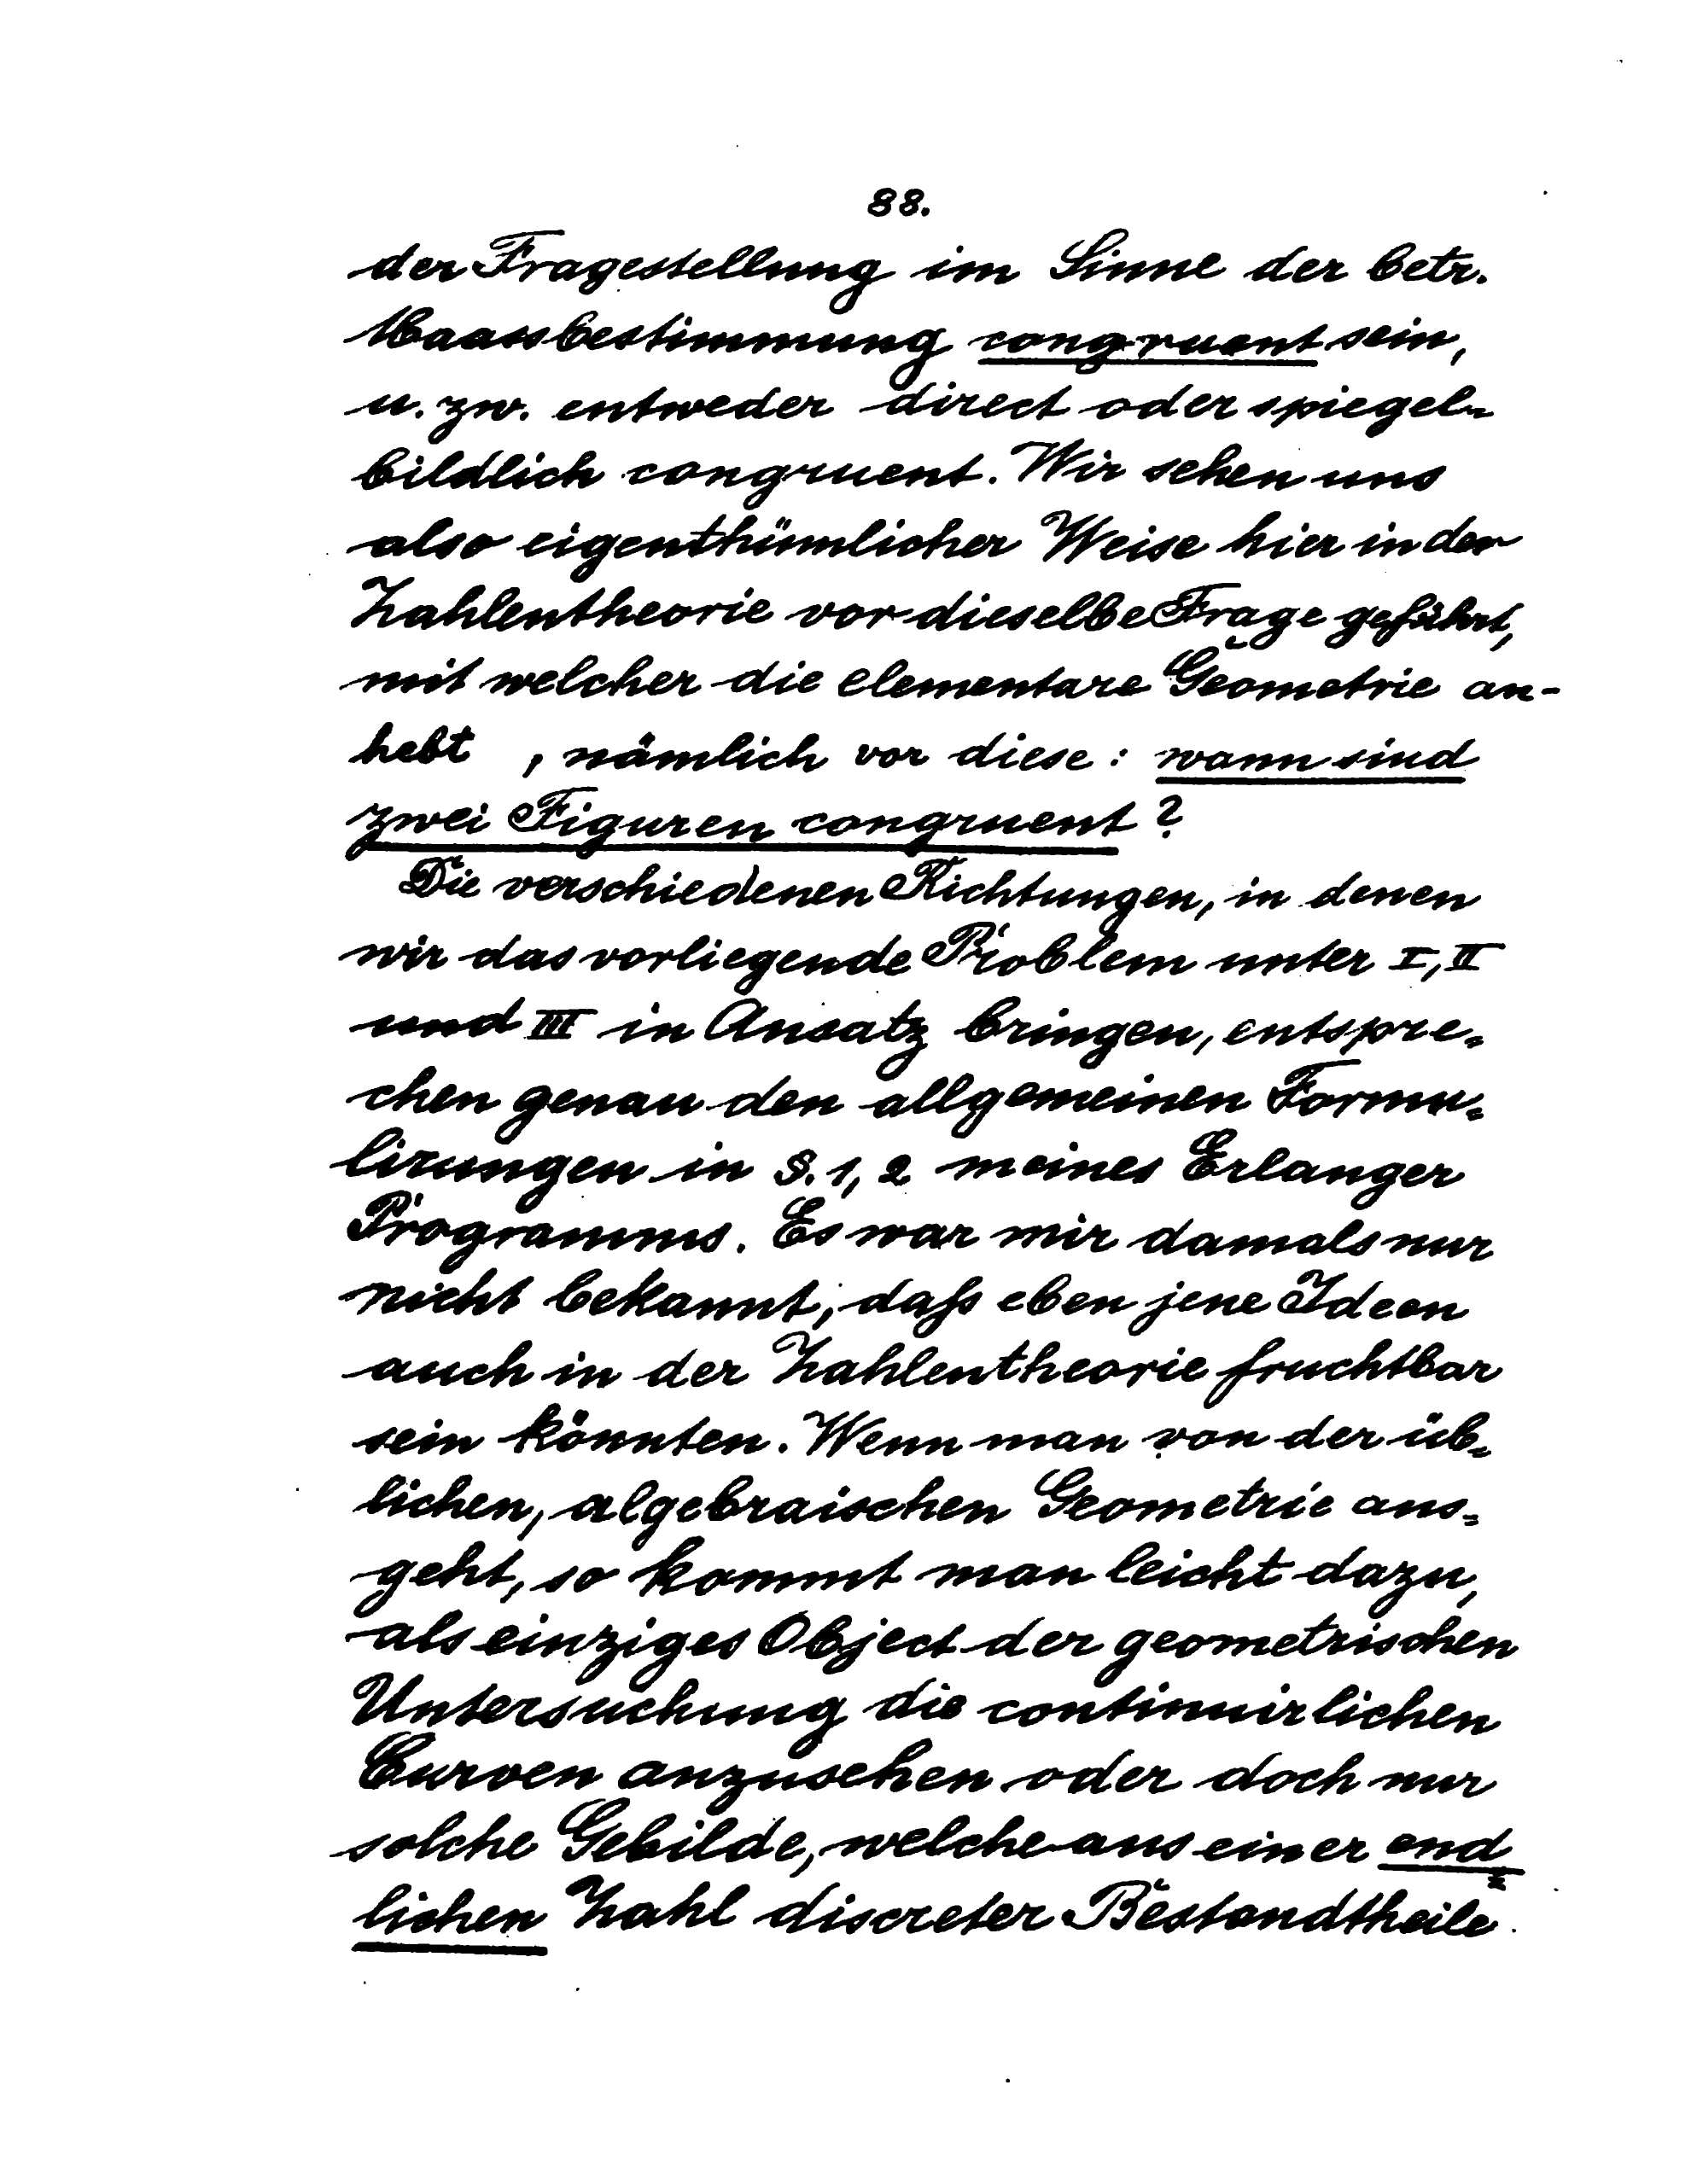 88.
der Fragestellung im Sinne der betr.
Maassbestimmung congruent sein,
u. zw. entweder direct oder spiegel=
bildlich congruent. Wir sehen uns
also eigenthümlicher Weise hier in der
Zahlentheorie vor dieselbe Frage geführt,
mit welcher die elementare Geometrie an-
hebt , nämlich vor diese: wann sind
zwei Figuren congruent?
Die verschiedenen Richtungen, in denen
wir das vorliegende Problem unter I, II
und III in Ansatz bringen, entspre=
chen genau den allgemeinen Formu=
lirungen in §. 1, 2 meines Erlanger
Programms. Es war mir damals nur
nicht bekannt, daß eben jene Ideen
auch in der Zahlentheorie fruchtbar
sein könnten. Wenn man von der üb=
lichen, algebraischen Geometrie aus=
geht, so kommt man leicht dazu,
als einziges Object der geometrischen
Untersuchung die continuirlichen
Curven anzusehen oder doch nur
solche Gebilde, welche aus einer end=
lichen Zahl discreter Bestandtheile